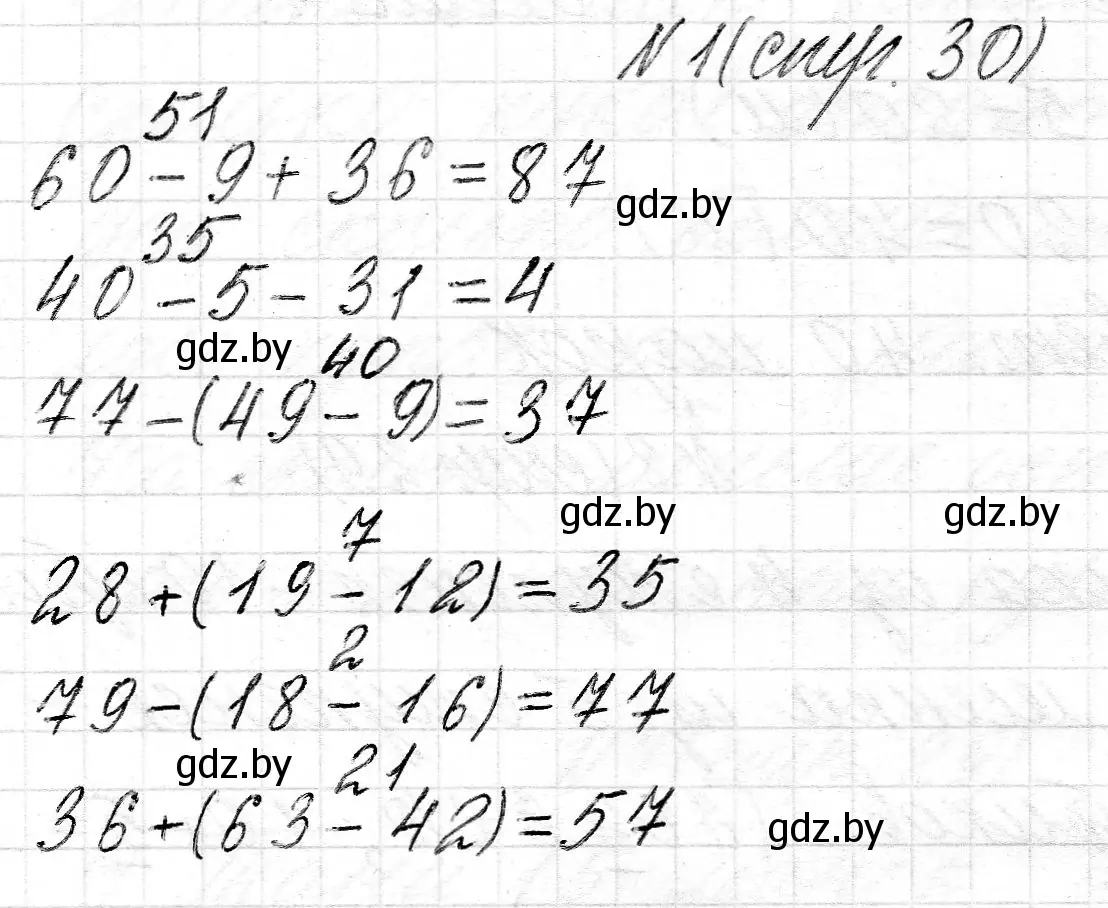 № 1 (стр. 30)
51
60 - 9 + 36 = 87
gdz.by
35
40 - 5 - 31 = 4
gdz.by
40
77 - (49 - 9) = 37
gdz.by gdz.by
7
28 + (19 - 12) = 35
2
79 - (18 - 16) = 77
gdz.by
21
36 + (63 - 42) = 57
gdz.by